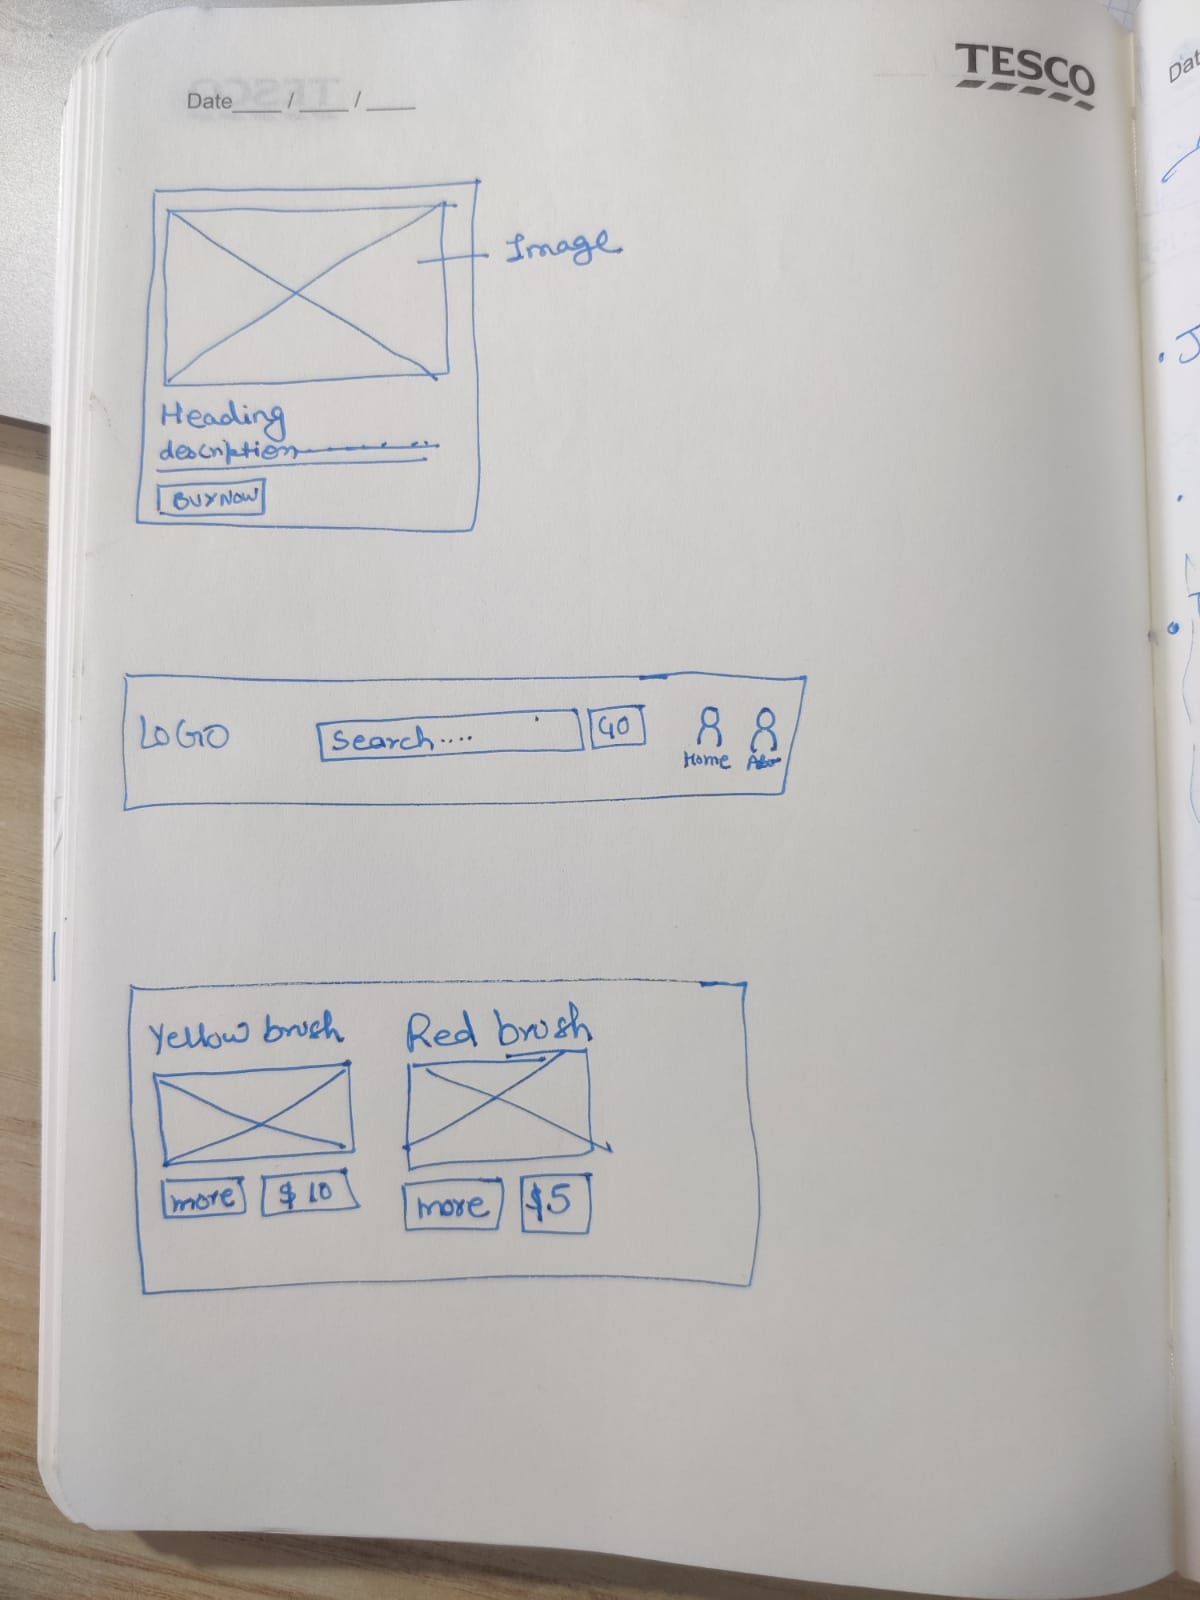 TESCO
Date___/___/___
Image
Heading
description
BUY NOW
LOGO
Search....
GO
Home
Yellow brush
Red brush
more
$10
more
$5